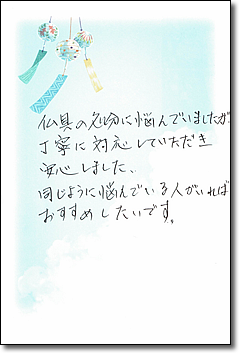 仏具の処分に悩んでいましたが
丁寧に対応していただき
安心しました、
同じように悩んでいる人がいれば
おすすめしたいです。